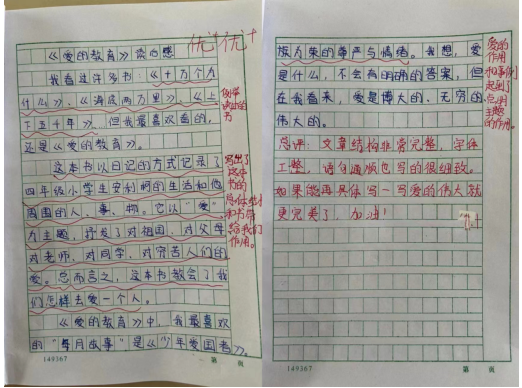 优+ 优+
《爱的教育》读后感
我看过许多书：《十万个为
什么》、《海底两万里》、《上
下五千年》……但我最喜欢看的，
还是《爱的教育》。
这本书以日记的方式记录了
四年级小学生安利柯的生活和他
周围的人、事、物。它以“爱”
为主题，抒发了对祖国、对父母
对老师、对同学、对穷苦人们的
爱。总而言之，这本书教会了我
们怎样去爱一个人。
《爱的教育》中，我最喜欢
的“每月故事”是《少年爱国者》。
的书
写出了
这本
书的
和书带
给我们
作用。
149367
第 页
族为荣的尊严与情绪。我想，爱
是什么，不会有明确的答案，但
在我看来，爱是博大的、无穷的
伟大的。
爱的
作用
起到了
主题
的作用。
总评：文章结构非常完整，字体
工整，语句通顺也写的很细致。
如果能再具体写一写爱的伟大就
更完美了，加油！
149367
第 页